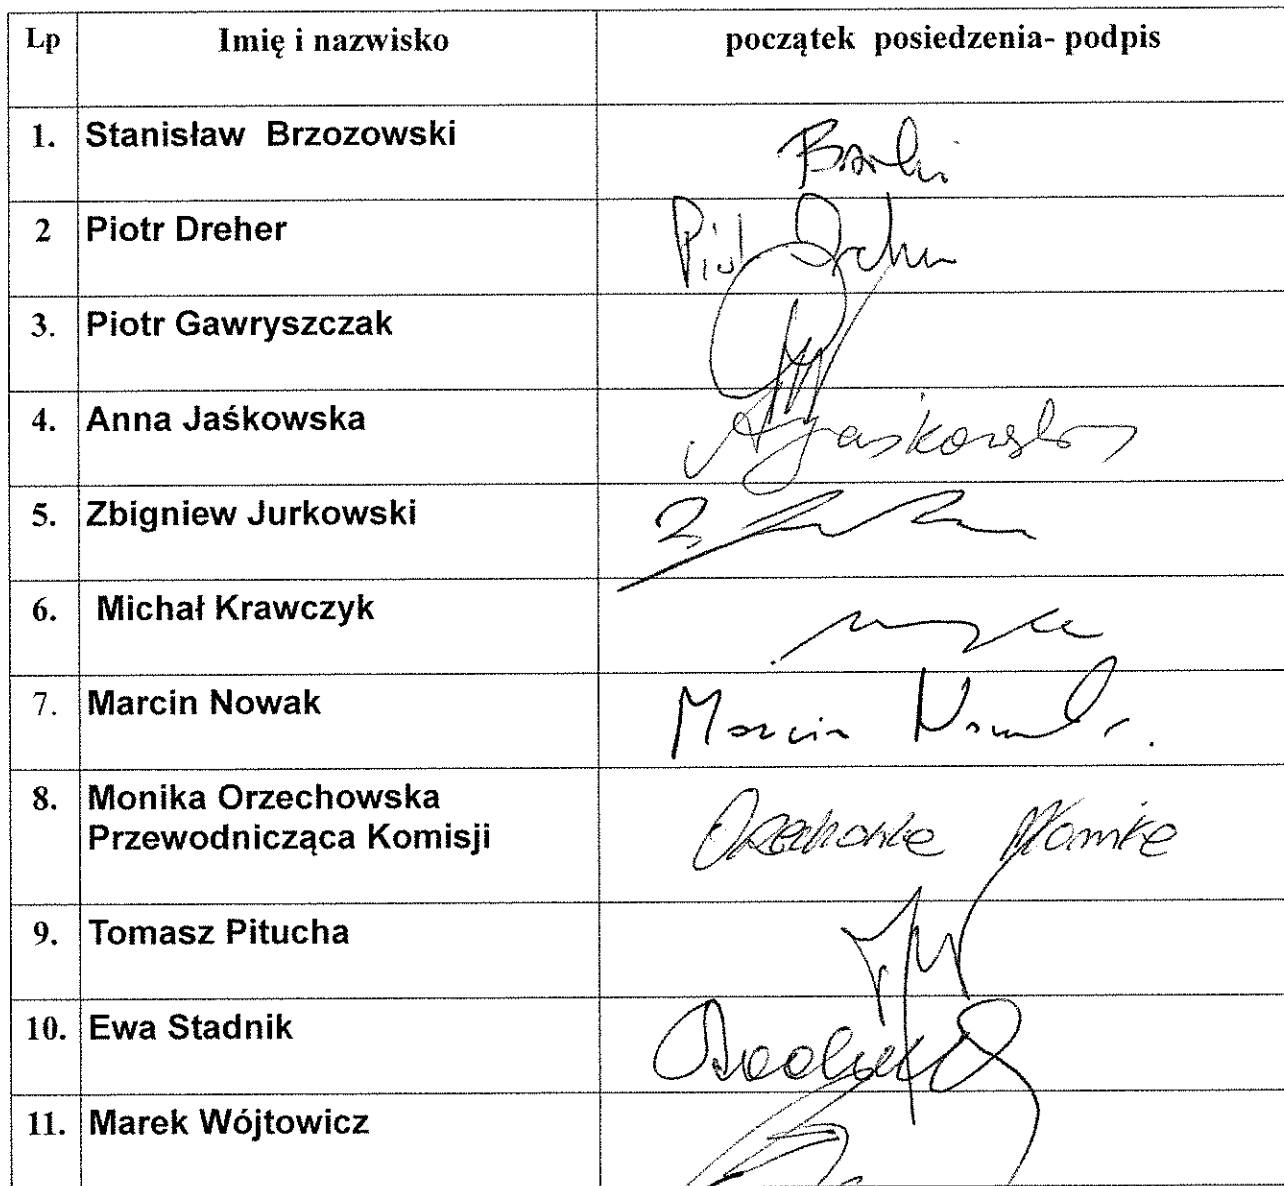 Lp Imię i nazwisko początek posiedzenia- podpis
1. Stanisław Brzozowski
2 Piotr Dreher Piotr Dreher
3. Piotr Gawryszczak
4. Anna Jaśkowska AJaśkowska
5. Zbigniew Jurkowski
6. Michał Krawczyk
7. Marcin Nowak Marcin Nowak
8. Monika Orzechowska
Przewodnicząca Komisji
9. Tomasz Pitucha
10. Ewa Stadnik
11. Marek Wójtowicz